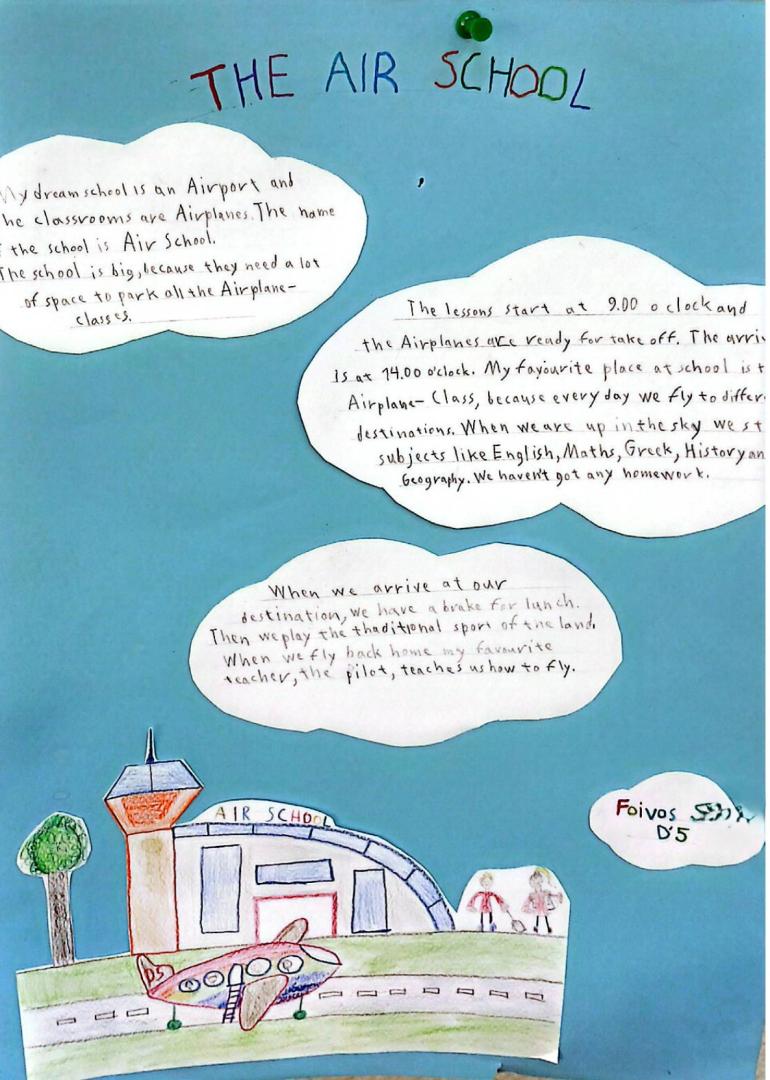 THE AIR SCHOOL
My dream school is an Airport and
he classrooms are Airplanes. The name
the school is Air School.
The school is big, because they need a lot
of space to park all the Airplane-
classes.
The lessons start at 9.00 o clock and
the Airplanes are ready for take off. The arri
is at 14.00 o'clock. My favourite place at school is t
Airplane- Class, because every day we fly to differ
destinations. When we are up in the sky we st
subjects like English, Maths, Greek, History an
Geography. We haven't got any homework.
When we arrive at our
destination, we have a brake for lunch.
Then we play the thaditional sport of the land.
When we fly back home my favourite
teacher, the pilot, teaches us how to fly.
AIR SCHOOL
Foivos
D'5
D5